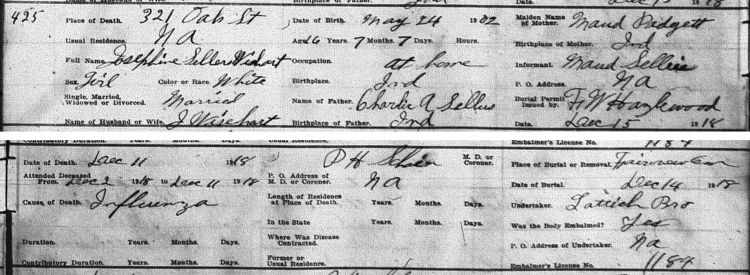 425 Place of Death. 321 Oak St Date of Birth. May 24 1902 Maiden Name of Mother. Maud Padgett
Usual Residence. NA Aged 16 Years. 7 Months. 7 Days. Hours. Birthplace of Mother. Ind
Full Name Josephine Sellers Wishart Occupation. at home Informant. Maud Sellers
Sex Girl Color or Race. White Birthplace. Ind P. O. Address. NA
Single, Married, Widowed or Divorced. Married Name of Father. Charlie A Sellers Burial Permit Issued by. F W Hazlewood
Name of Husband or Wife. J Wisehart Birthplace of Father. Ind Date. Dec 15 1918
Contributory Duration. Years. Months. Days. Usual Residence. Embalmer's License No. 1184
Date of Death. Dec 11 1918 P H M. D. or Coroner. Place of Burial or Removal. Fairview Cem
Attended Deceased From. Dec 2 1918 to Dec 11 1918 P. O. Address of M. D. or Coroner. NA Date of Burial. Dec 14 1918
Cause of Death. Influenza Length of Residence at Place of Death. Years. Months. Days. Undertaker. Bro
In the State Years. Months. Days. Was the Body Embalmed? Yes
Duration. Years. Months. Days. Where Was Disease Contracted. P. O. Address of Undertaker. Na
Contributory Duration. Years. Months. Days. Former or Usual Residence. Embalmer's License No. 1184